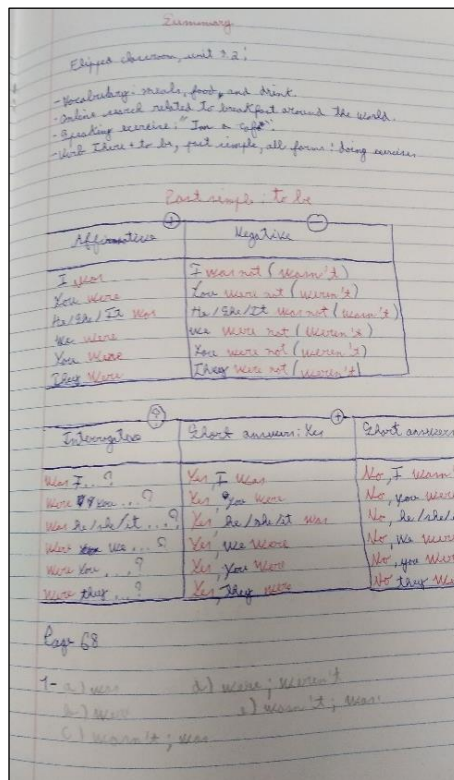 Summary
Flipped classroom, unit 3.2;
- Vocabulary: meals, food, and drink.
- Online search related to breakfast around the world.
- Speaking exercise: "In a café".
- Verb There + to be, past simple, all forms: doing exercises
Past simple: to be
+ −
Affirmative Negative
I was I was not (wasn't)
You were You were not (weren't)
He/She/It was He/She/It was not (wasn't)
We were We were not (weren't)
You were You were not (weren't)
They were They were not (weren't)
? +
Interrogative Short answers: Yes Short answers
Was I...? Yes, I was No, I wasn't
Were you...? Yes, you were No, you were
Was he/she/it...? Yes, he/she/it was No, he/she/
Were we...? Yes, we were No, we were
Were you...? Yes, you were No, you were
Were they...? Yes, they were No they we
Page 68
1- a) was d) were; weren't
b) were e) wasn't; was
c) wasn't; was